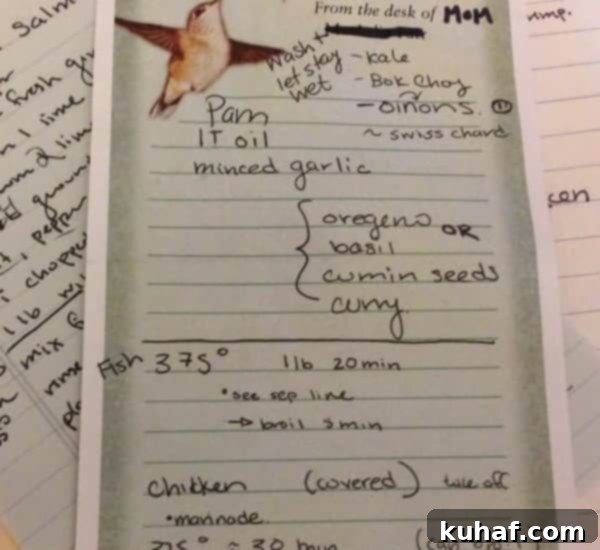 From the desk of MOM
wash +
let stay
wet
- kale
- Bok Choy
- oinons. ①
~ swiss chard
Pam
1T oil
minced garlic
oregeno OR
basil
cumin seeds
curry
Fish 375° 1 lb 20min
• see sep line
→ broil 5 min
chicken (covered) take off
• marinade.
375° = 30
Salm
fresh
1 lime
lim
ground
pepper
chopped
1 lb
mix
kuhaf.com